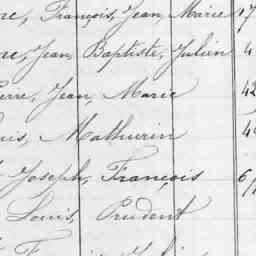 François, Jean Marie 17
Jean, Baptiste, Julien 4
Jean, Marie 42
Mathurin 4
Joseph, François 6
Louis, Prudent